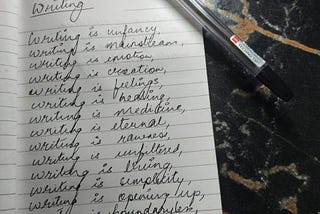 Writing
Writing is unfancy,
writing is mainstream,
writing is emotion,
writing is creation,
writing is feelings,
writing is healing,
writing is medicine,
writing is eternal,
writing is rawness,
writing is unfiltered,
writing is living,
writing is simplicity,
writing is opening up,
is boundryless,